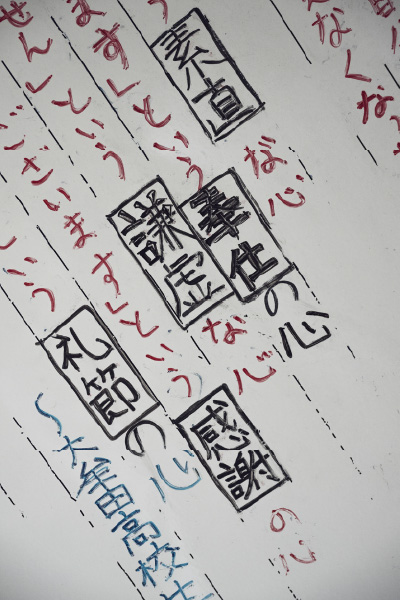 んなくな
素直な心
ます」という奉仕の心
せん」という謙虚な心
ございます」という感謝の心
う礼節の心
～大牟田高校生